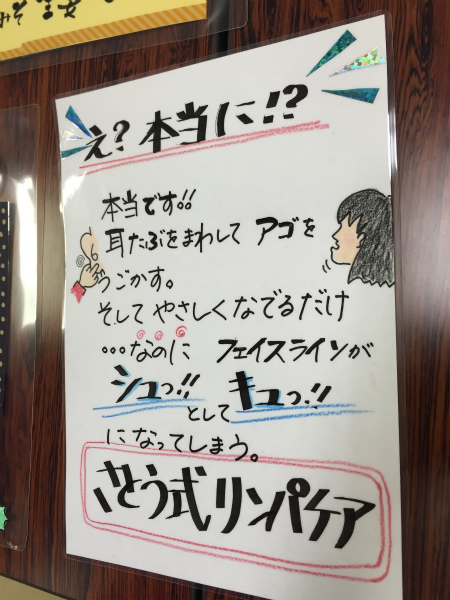 え?本当に!?
本当です!!
耳たぶをまわして アゴを
うごかす。
そして やさしくなでるだけ
…なのに フェイスラインが
シュっ!! として キュっ!!
になってしまう。
さとう式リンパケア